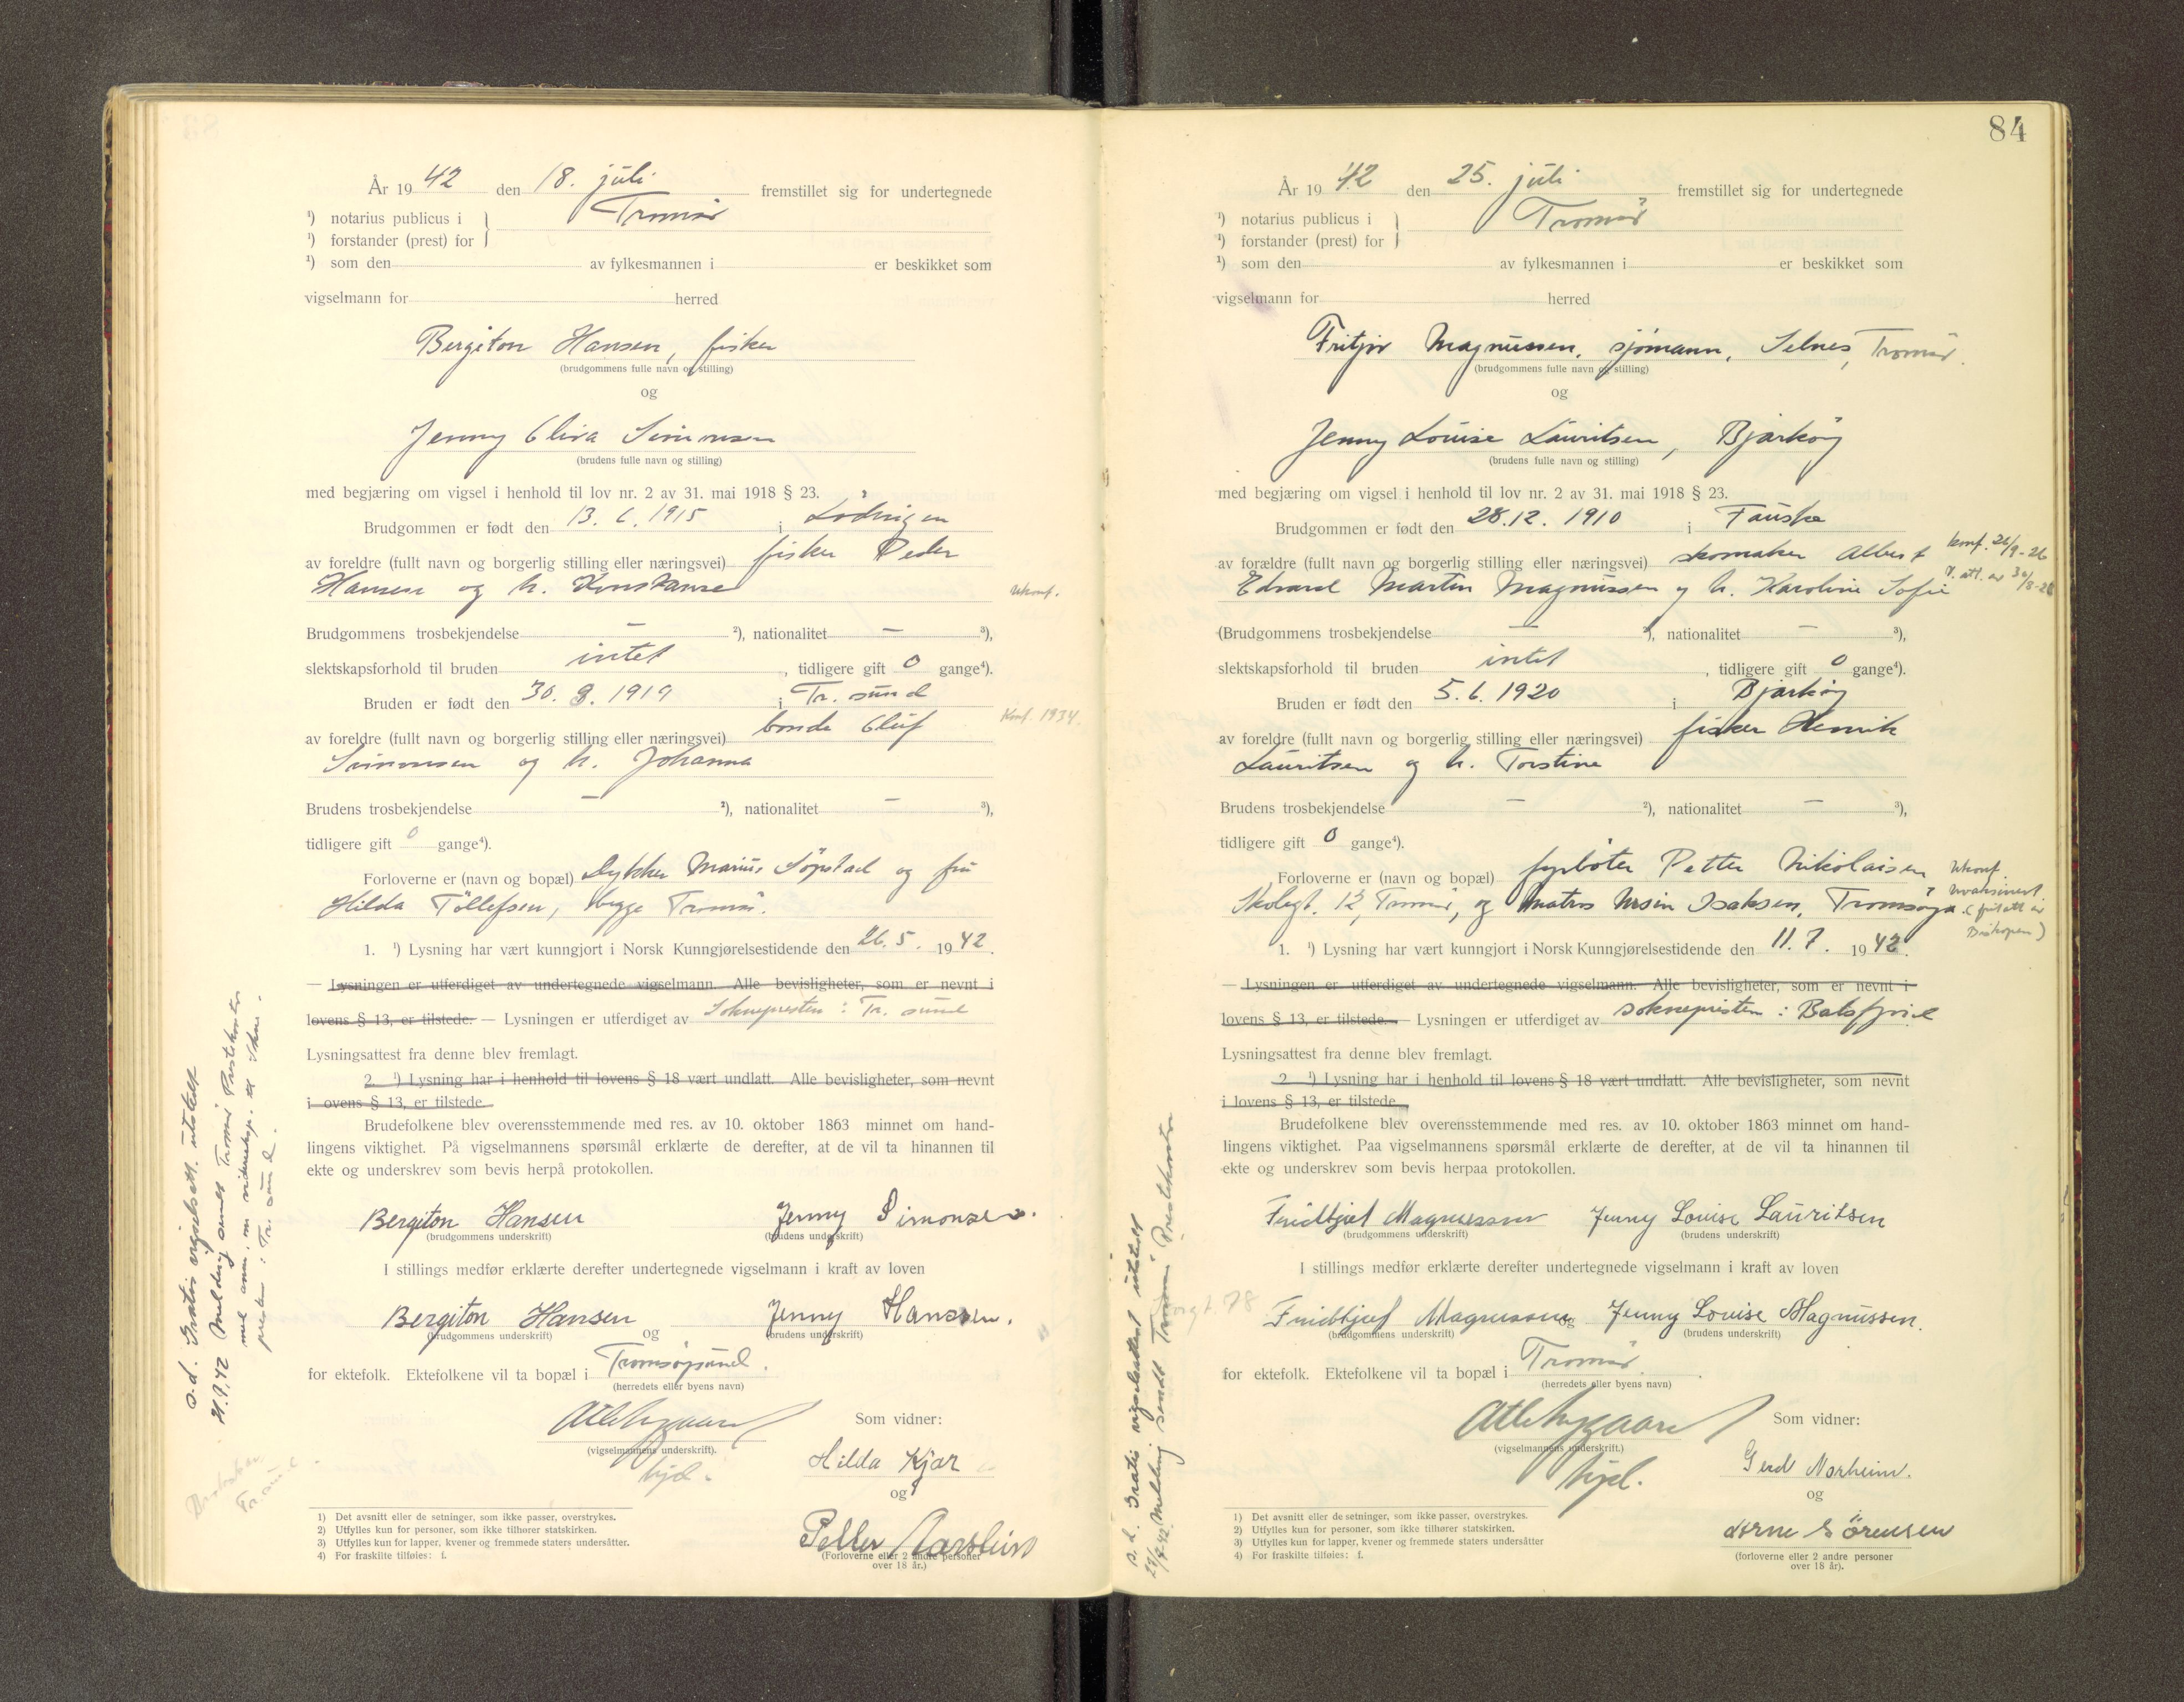 År 1942 den 18. juli fremstillet sig for undertegnede
¹) notarius publicus i } Tromsø
¹) forstander (prest) for
¹) som den av fylkesmannen i er beskikket som
vigselmann for herred
Bergiton Hansen, fisker
(brudgommens fulle navn og stilling)
og
Jenny Oliva Simonsen
(brudens fulle navn og stilling)
med begjæring om vigsel i henhold til lov nr. 2 av 31. mai 1918 § 23.
Brudgommen er født den 13. 6. 1915 i Lødingen
av foreldre (fullt navn og borgerlig stilling eller næringsvei) fisker Peder
Hansen og h. Konstanse
Ukonf.
Brudgommens trosbekjendelse — ²), nationalitet — ³),
slektskapsforhold til bruden intet, tidligere gift 0 gange⁴).
Bruden er født den 30. 8. 1919 i Tr. sund
Konf. 1934.
av foreldre (fullt navn og borgerlig stilling eller næringsvei) bonde Oluf
Simonsen og h. Johanna
Brudens trosbekjendelse — ²), nationalitet — ³),
tidligere gift 0 gange⁴).
Forloverne er (navn og bopæl) Dykker Marius Sörstad og fru
Hilda Tollefsen, begge Tromsø.
1. ¹) Lysning har vært kunngjort i Norsk Kunngjørelsestidende den 26. 5. 1942.
— Lysningen er utferdiget av undertegnede vigselmann. Alle bevisligheter, som er nevnt i
lovens § 13, er tilstede. — Lysningen er utferdiget av Soknepresten i Tr. sund
Lysningsattest fra denne blev fremlagt.
2. ¹) Lysning har i henhold til lovens § 18 vært undlatt. Alle bevisligheter, som nevnt
i ovens § 13, er tilstede
Brudefolkene blev overensstemmende med res. av 10. oktober 1863 minnet om hand-
lingens viktighet. På vigselmannens spørsmål erklærte de derefter, at de vil ta hinannen til
ekte og underskrev som bevis herpå protokollen.
Bergiton Hansen Jenny Simonsen.
(brudgommens underskrift) (brudens underskrift)
I stillings medfør erklærte derefter undertegnede vigselmann i kraft av loven
Bergiton Hansen og Jenny Hansen.
(brudgommens underskrift) (brudens underskrift)
for ektefolk. Ektefolkene vil ta bopæl i Tromsøysund.
(herredets eller byens navn)
Som vidner:
(vigselmannens underskrift).
Hilda Kjær
og
Petter
(Forloverne eller 2 andre personer
over 18 år.)
1) Det avsnitt eller de setninger, som ikke passer, overstrykes.
2) Utfylles kun for personer, som ikke tilhører statskirken.
3) Utfylles kun for lapper, kvener og fremmede staters undersåtter.
4) For fraskilte tilføies: f.
s.d. Gratis vigselsatt. utstedt
21.9.42 Melding sendt Tromsø Prestekontor
84
År 1942 den 25. juli fremstillet sig for undertegnede
¹) notarius publicus i } Tromsø
¹) forstander (prest) for
¹) som den av fylkesmannen i er beskikket som
vigselmann for herred
Fritjov Magnussen, sjømann, Selnes, Tromsø.
(brudgommens fulle navn og stilling)
og
Jenny Louise Lauritsen, Bjarkøy
(brudens fulle navn og stilling)
med begjæring om vigsel i henhold til lov nr. 2 av 31. mai 1918 § 23.
Brudgommen er født den 28.12. 1910 i Fauske
av forældre (fullt navn og borgerlig stilling eller næringsvei) skomaker Albert
konf. 26/9-26
Edvard Martin Magnussen og h. Karoline Sofie
V. att. av 30/8-28
(Brudgommens trosbekjendelse — ²), nationalitet — ³),
slektskapsforhold til bruden intet, tidligere gift 0 gange⁴).
Bruden er født den 5. 6. 1920 i Bjarkøy
av foreldre (fullt navn og borgerlig stilling eller næringsvei) fisker Henrik
Lauritsen og h. Torstine
Brudens trosbekjendelse — ²), nationalitet — ³),
tidligere gift 0 gange⁴).
Forloverne er (navn og bopæl) fyrbøter Petter Nikolaisen
Skolegt. 13, Tromsø, og matros Isaksen, Tromsøya.
Ukonf.
Uvaksinert.
(frit att. av
Biskopen)
1. ¹) Lysning har vært kunngjort i Norsk Kunngjørelsestidende den 11. 7. 1942.
— Lysningen er utferdiget av undertegnede vigselmann. Alle bevisligheter, som er nevnt i
lovens § 13, er tilstede. — Lysningen er utferdiget av soknepresten i Balsfjord
Lysningsattest fra denne blev fremlagt.
2 ¹) Lysning har i henhold til lovens § 18 vært undlatt. Alle bevisligheter, som nevnt
i lovens § 13, er tilstede
Brudefolkene blev overensstemmende med res. av 10. oktober 1863 minnet om hand-
lingens viktighet. Paa vigselmannens spørsmål erklærte de derefter, at de vil ta hinannen til
ekte og underskrev som bevis herpaa protokollen.
Fridthjof Magnussen Jenny Louise Lauritsen
(brudgommens underskrift) (brudens underskrift)
I stillings medfør erklærte derefter undertegnede vigselmann i kraft av loven
Fridthjof Magnussen og Jenny Louise Magnussen.
(brudgommens underskrift) (brudens underskrift)
for ektefolk. Ektefolkene vil ta bopæl i Tromsø.
(herredets eller byens navn)
Som vidner:
(vigselmannens underskrift.)
Gerd Norheim.
og
Sørensen
(forloverne eller 2 andre personer
over 18 år).
1) Det avsnitt eller de setninger, som ikke passer, overstrykes.
2) Utfylles kun for personer, som ikke tilhører statskirken.
3) Utfylles kun for lapper, kvener og fremmede staters undersåtter
4) For fraskilte tilføies: f.
s.d. Gratis vigselsattest utstedt
Melding sendt Tromsø Prestekontor